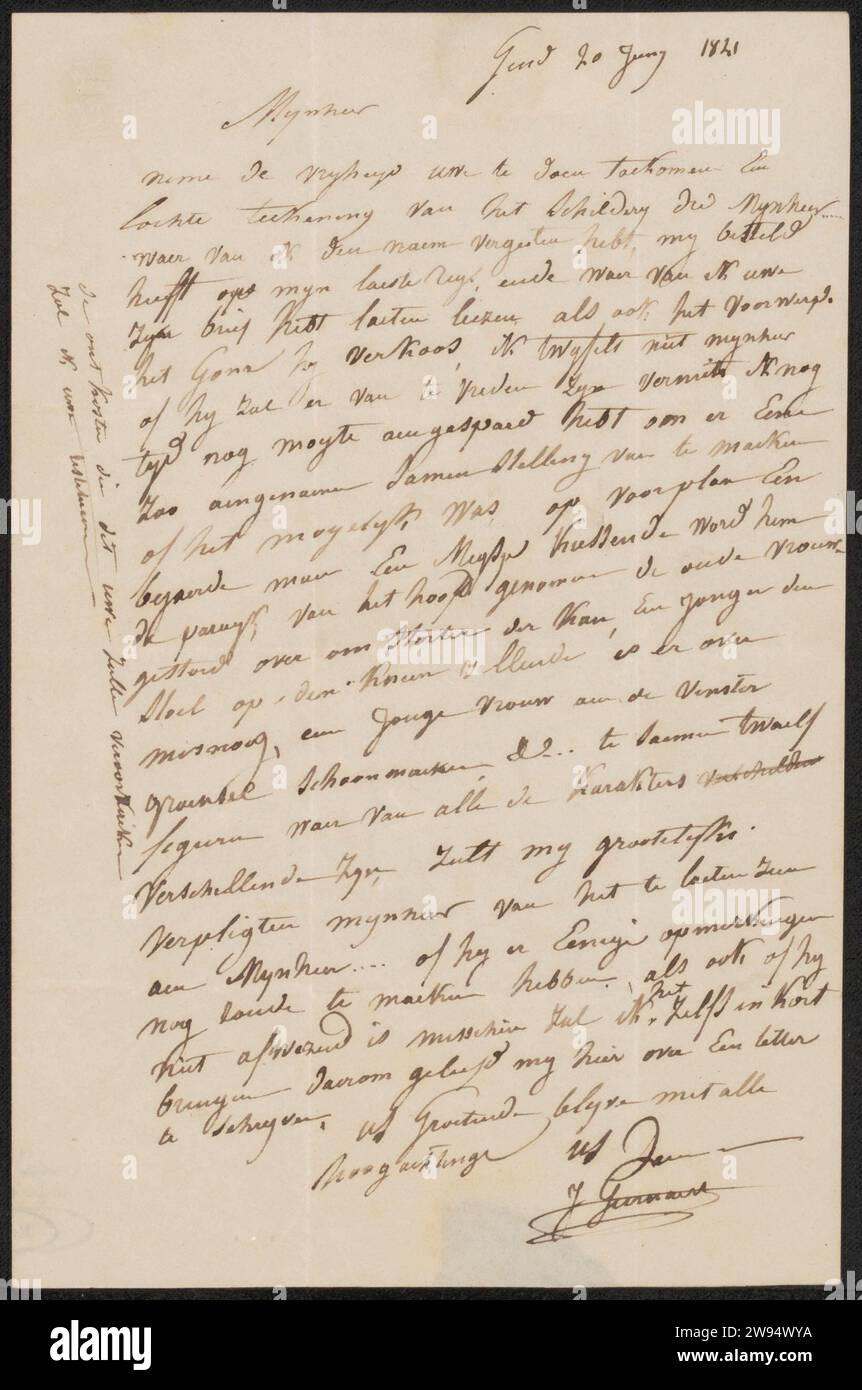 Gend 20 Juny 1821
Mynheer
neme de vryheyd uwe te doen toekomen Een
lochte teekening van het Schildery die Mynheer.....
waer van ik den naem vergeeten hebt, my besteld
heeft op myn laeste reys, ende waer van ik uwe
Zyn brief hebt laeten leezen als ook het voorwerp
het Gone hy verkoos, ik twyfelt niet mynheer
of hy Zal er van te vreden Zyn vermits ik nog
tyd nog moyte aengespaerd hebt om er Eene
Zoo aengenaeme Samen Stelling van te maeken
of het mogelyk was, op voorplan Een
bejaerde man Een Mysje kussende word hem
de paruyk van het hoofd genomen de oude vrouw
gestoord over om storten der kan, Een Jonger den
Stoel op den knien is er over
misnoeg, een Jonge vrouw aen de venster
groensel schoonmaeken, &&... te saemen twaelf
feguren waer van alle de karakters
verschellende Zyn, Zult my grootelyks
verpligten mynheer van het te laeten zien
aen Mynheer.... of hy er Eenige opmerkingen
nog soude te maeken hebben, als ook of hy
niet afwezend is misschien Zal ik het Zelfs in kort
brengen daerom geliefd my hier over Een letter
te schryven, us Groetende blyve met alle
hoog achtinge us Dien
J Geirnaert
de onkosten die dit uwe zulle veroorzaeken
Zal ik uwe
alamy
Image ID: 2W94WYA
www.alamy.com